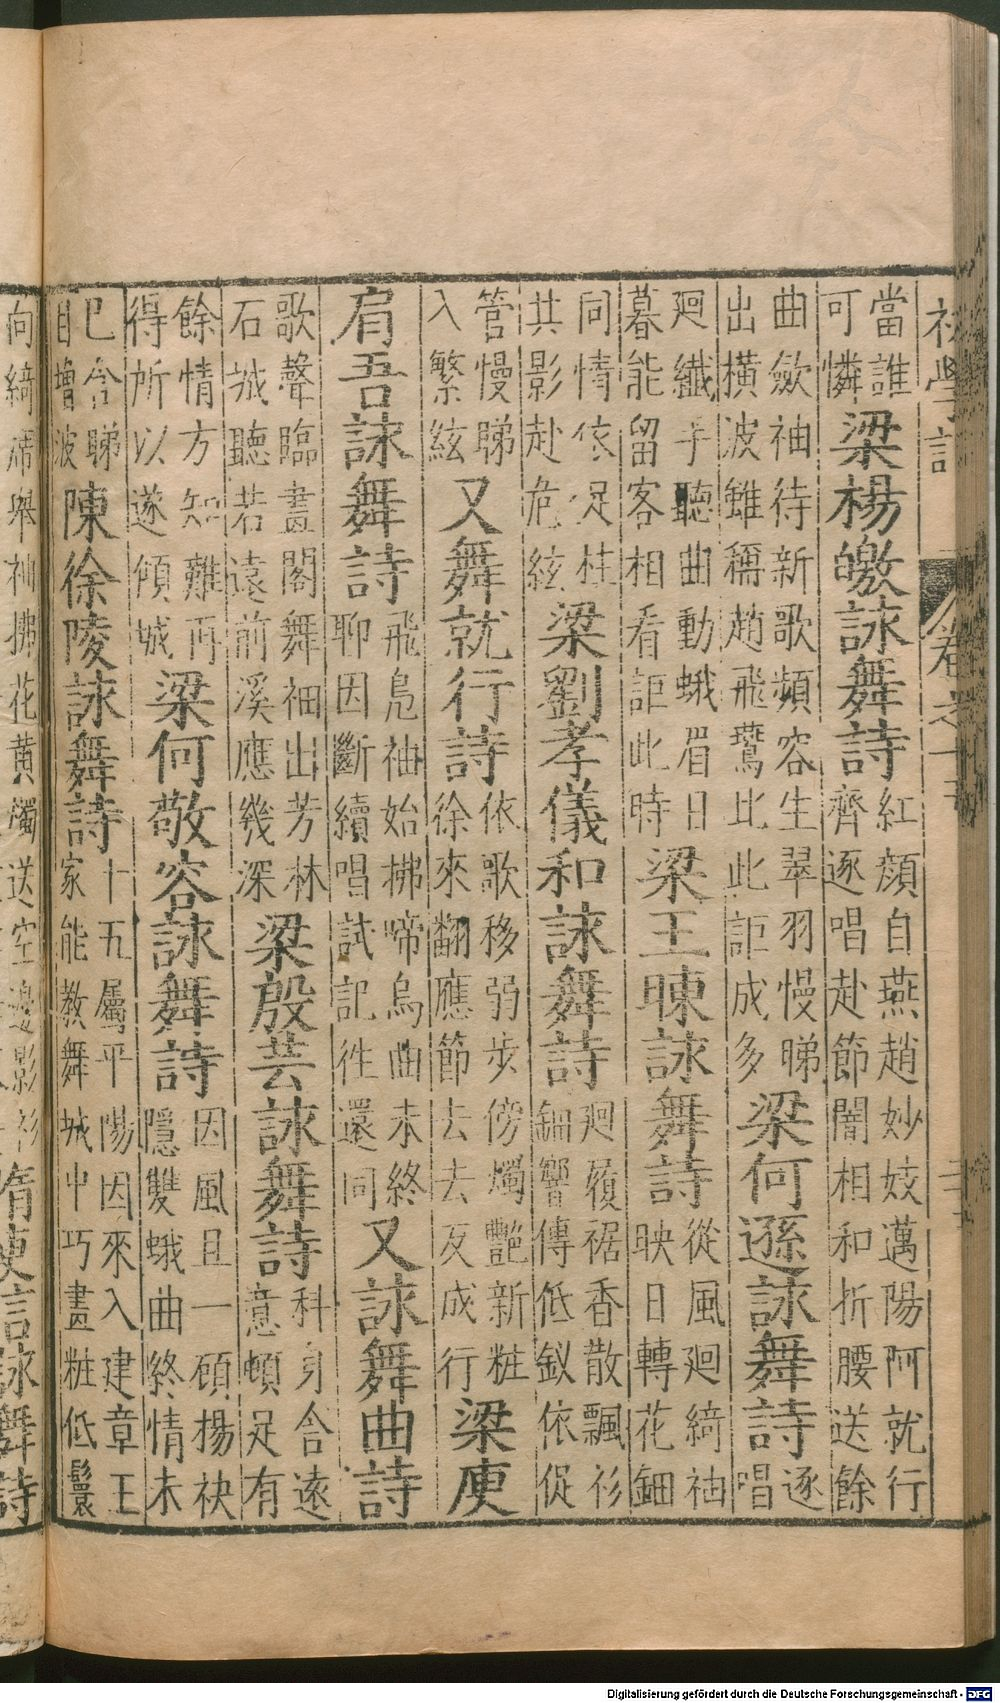 初學記 卷之十五
當誰
可憐
梁楊皦詠舞詩
紅顏自燕趙妙妓邁陽阿就行
齊逐唱赴節闇相和折腰送餘
曲歛袖待新歌頻容生翠羽慢睇
出橫波雖稱趙飛鷰比此詎成多
梁何遜詠舞詩
逐
唱
廻纖手聽曲動蛾眉日
暮能留客相看詎此時
梁王暕詠舞詩
從風廻綺袖
映日轉花鈿
同情依促柱
共影赴危絃
梁劉孝儀和詠舞詩
廻履裾香散飄衫
鈿響傳低釵依促
管慢睇
入繁絃
又舞就行詩
依歌移弱步傍燭艷新粧
徐來翻應節去去反成行
梁庾
肩吾詠舞詩
飛鳧袖始拂啼烏曲未終
聊因斷續唱試記徃還同
又詠舞曲詩
歌聲臨畫閣舞袖出芳林
石城聽若遠前溪應幾深
梁殷芸詠舞詩
科身含遠
意頓足有
餘情方知難再
得所以遂傾城
梁何敬容詠舞詩
因風且一顧揚袂
隱雙蛾曲終情未
已含睇
目增波
陳徐陵詠舞詩
十五屬平陽因來入建章王
家能教舞城中巧畫粧低鬟
向綺席舉袖拂花黃燭送空邊影衫
隋庾言詠舞詩
Digitalisierung gefördert durch die Deutsche Forschungsgemeinschaft - DFG